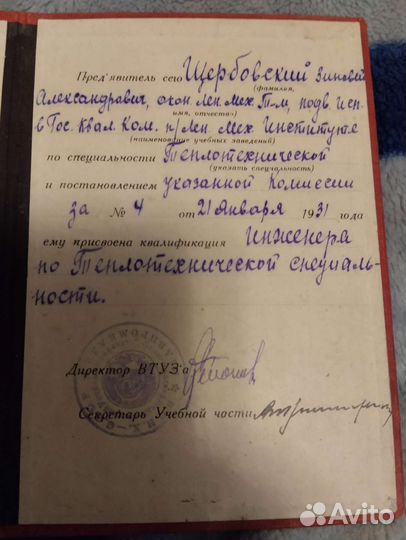 Пред'явитель сего Щербовский Зиновей
(фамилия,
Александрович, окон. Лен. Мех. Т-м, подв. исп.
имя, отчество)
в Гос. Квал. Ком. п/Лен. Мех. Институте
(наименование учебных заведений)
по специальности Теплотехнической
(указать специальность)
и постановлением указанной Комиссии
за № 4 от 21 Января 1931 года
ему присвоена квалификация Инженера
по Теплотехнической специаль-
ности.
Директор ВТУЗ'а
Секретарь Учебной части
Avito